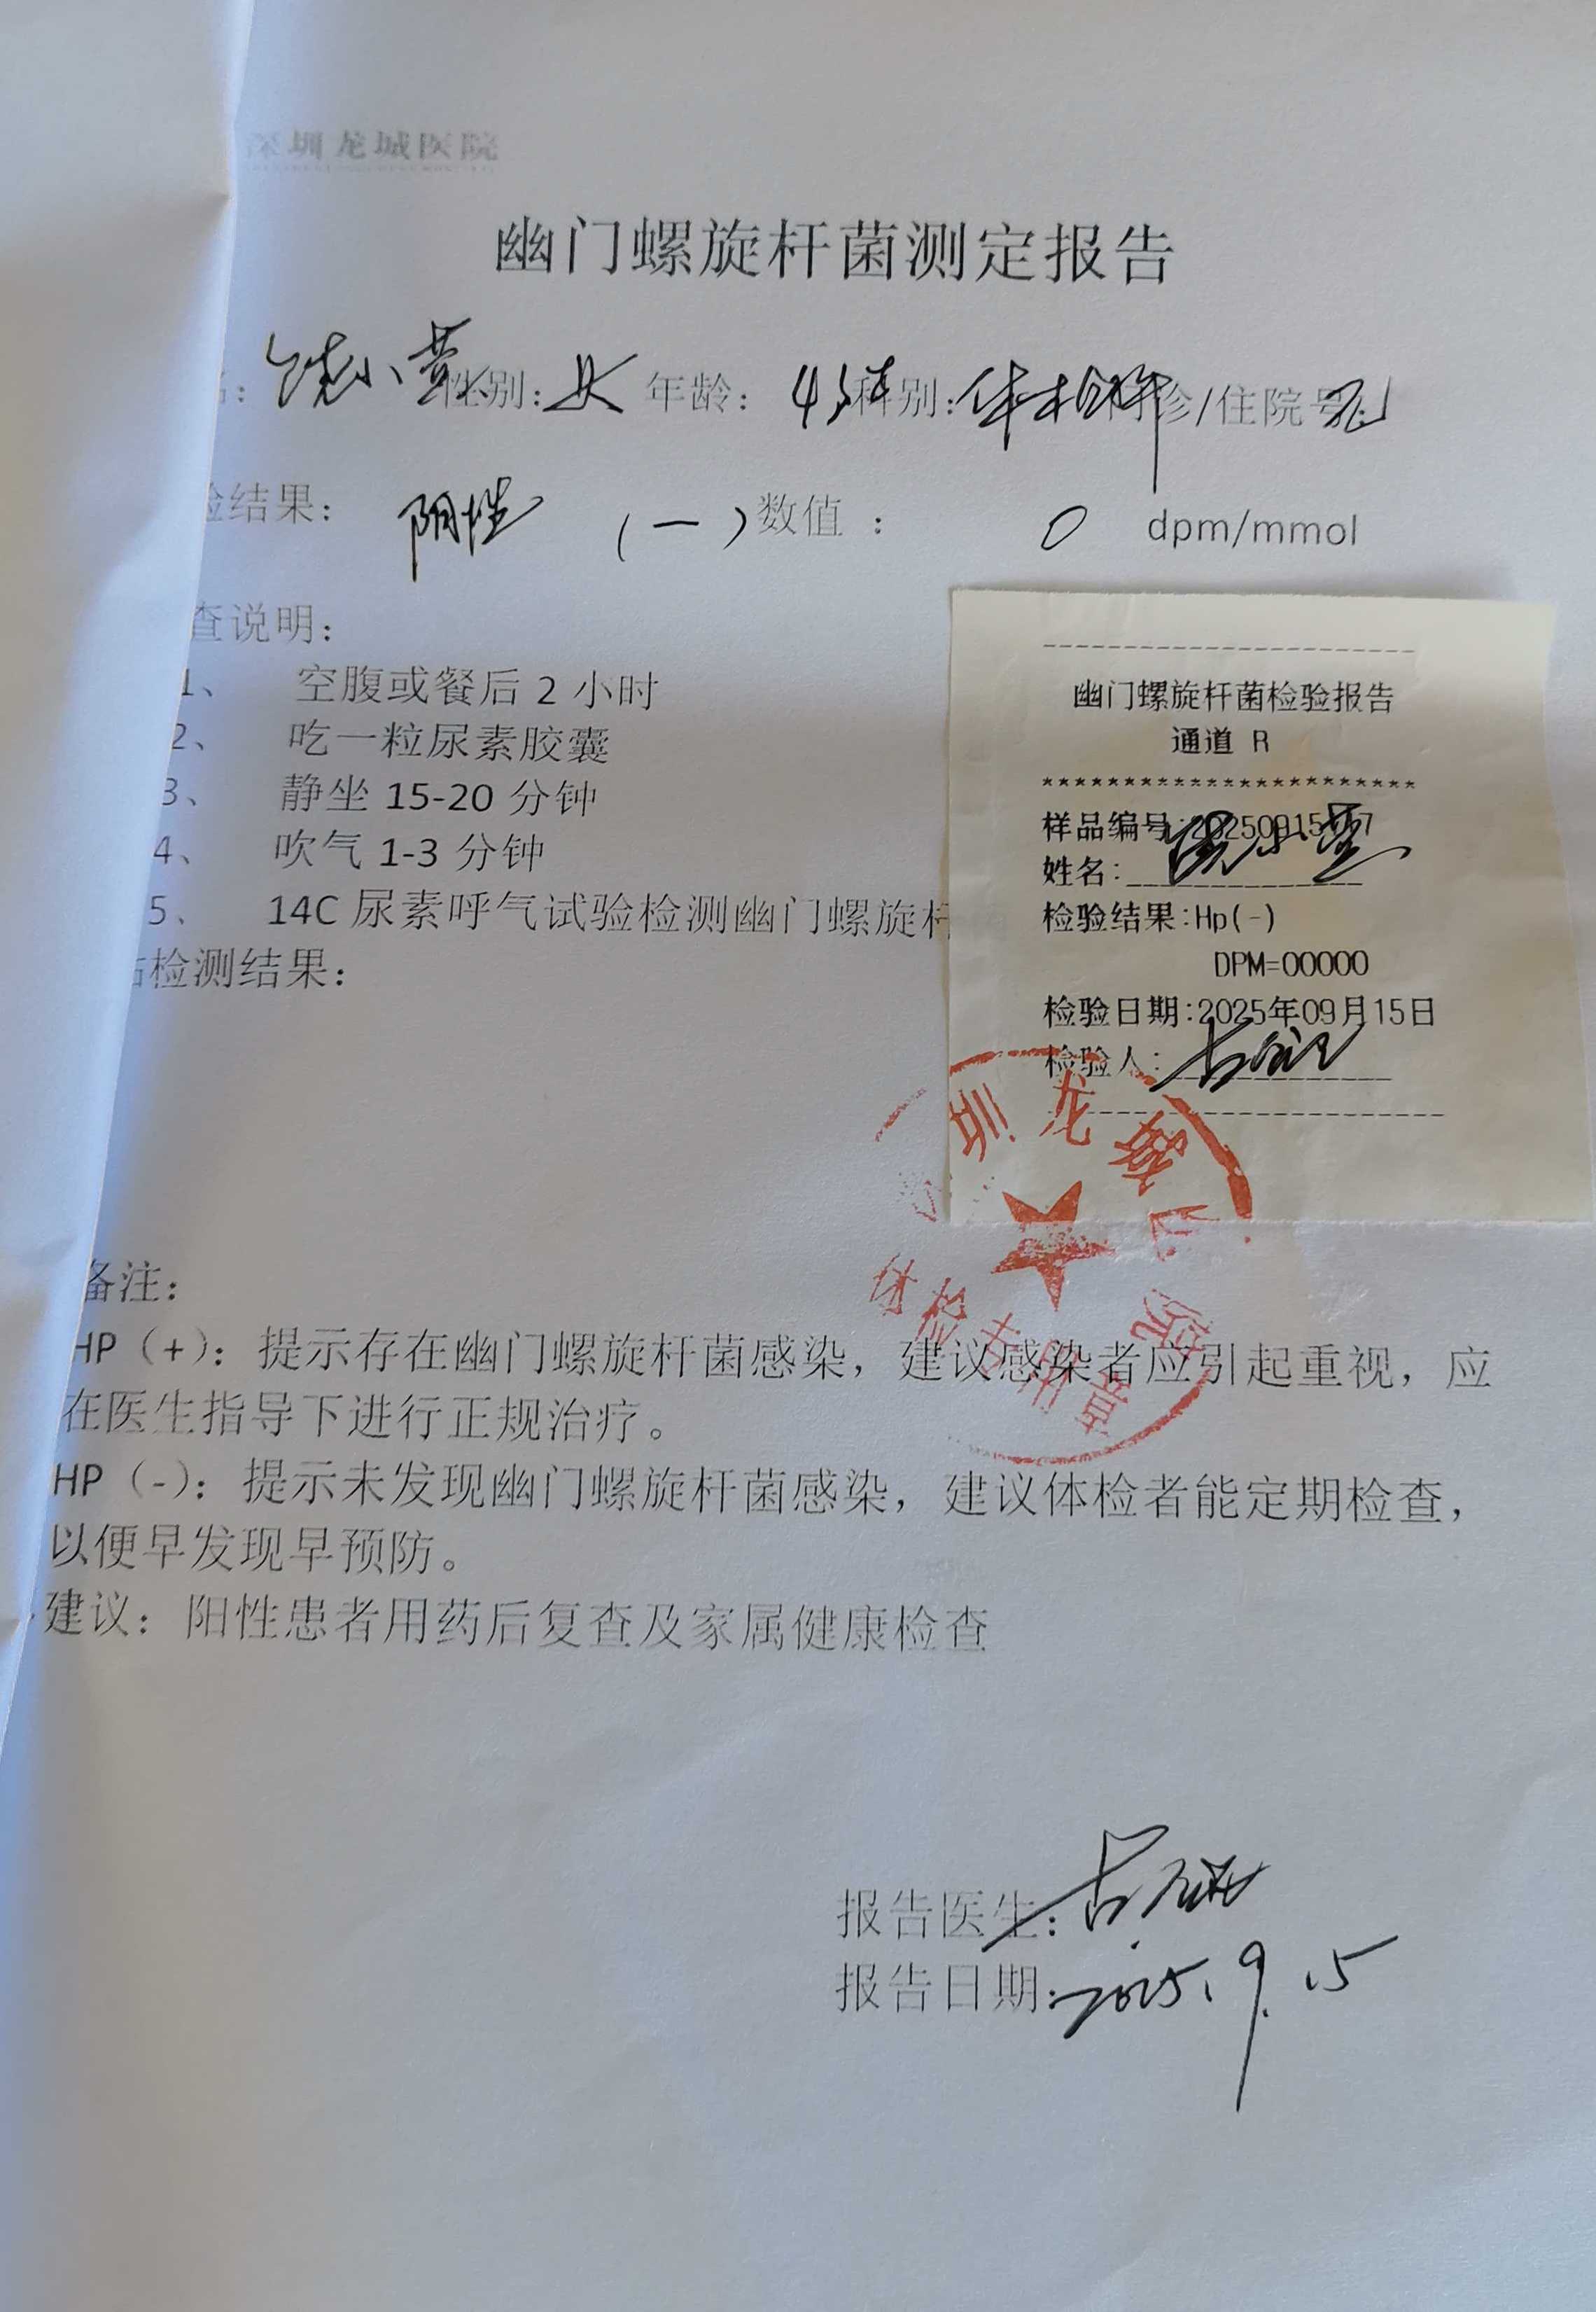 深圳龙城医院
幽门螺旋杆菌测定报告
饶小 性别: 女 年龄: 科别: 体检科 诊/住院号
结果: 阴性 (一) 数值: 0 dpm/mmol
查说明:
1、 空腹或餐后 2 小时
2、 吃一粒尿素胶囊
3、 静坐 15-20 分钟
4、 吹气 1-3 分钟
5、 14C 尿素呼气试验检测幽门螺旋杆
检测结果:
幽门螺旋杆菌检验报告
通道 R
***********************
样品编号:
姓名:
检验结果:Hp(-)
DPM=00000
检验日期:2025年09月15日
检验人:
圳龙城医院
备注:
HP（+）：提示存在幽门螺旋杆菌感染，建议感染者应引起重视，应
在医生指导下进行正规治疗。
HP（-）：提示未发现幽门螺旋杆菌感染，建议体检者能定期检查，
以便早发现早预防。
建议：阳性患者用药后复查及家属健康检查
报告医生:
报告日期: 2025.9.15